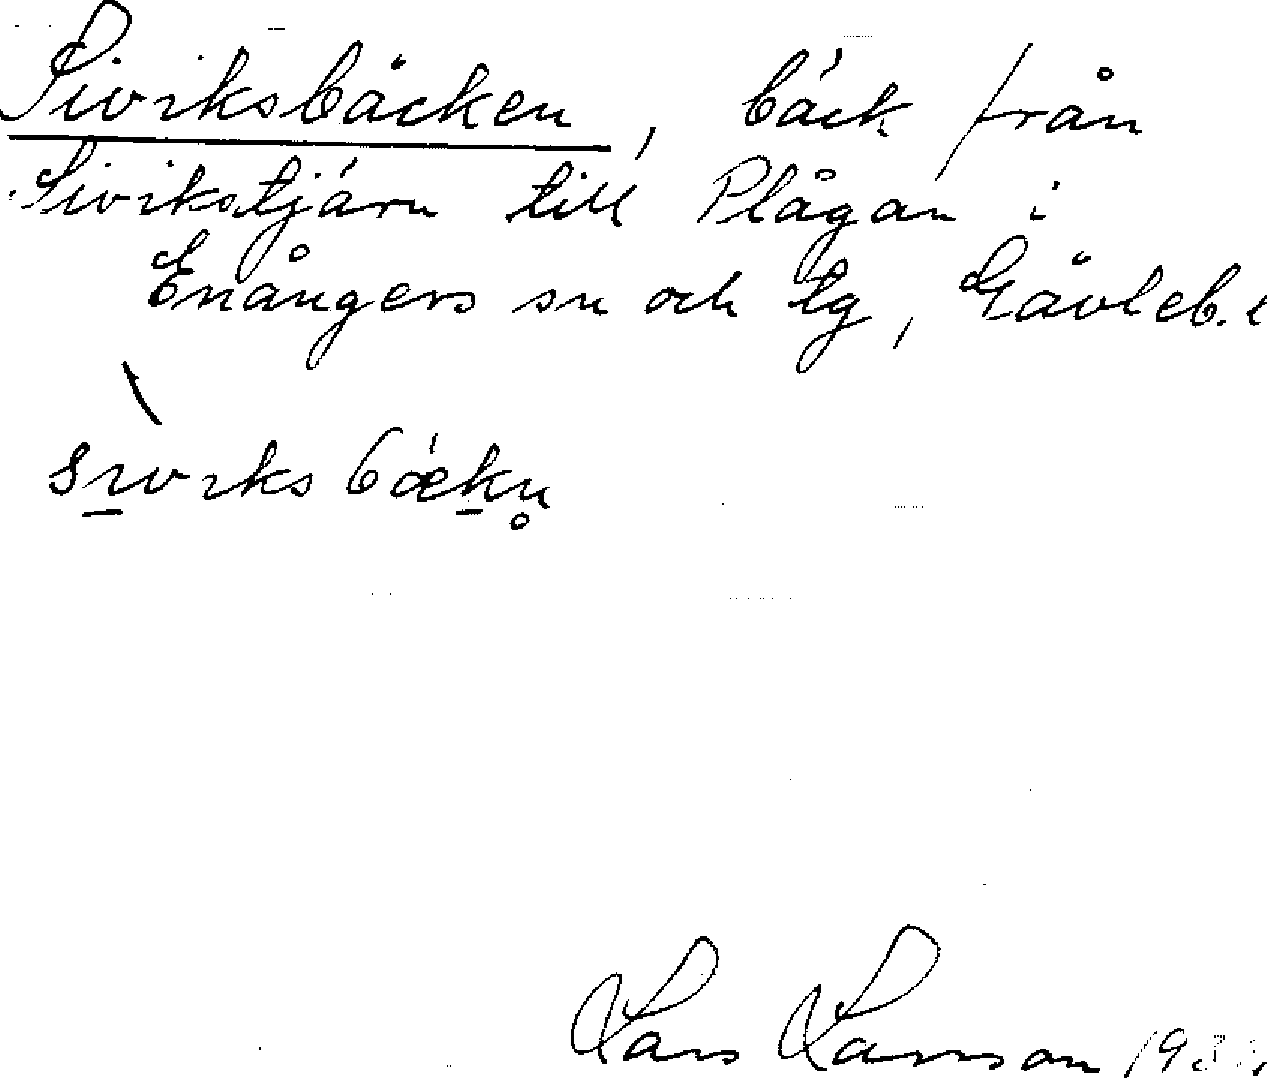 Siviksbäcken, bäck från
Sivikstjärn till Plågan i
Enångers sn och tg, Gävleb.
sıvıksbækn̥
Lars Larsson